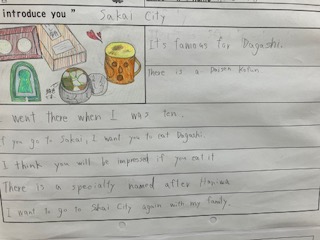 introduce you "
Sakai City
It's famous for Dagashi.
There is a Daisen Kofun
I went there when I was ten.
If you go to Sakai, I want you to eat Dagashi.
I think you will be impressed if you eat it
There is a specialty named after Naniwa
I want to go to Skai City again with my family.